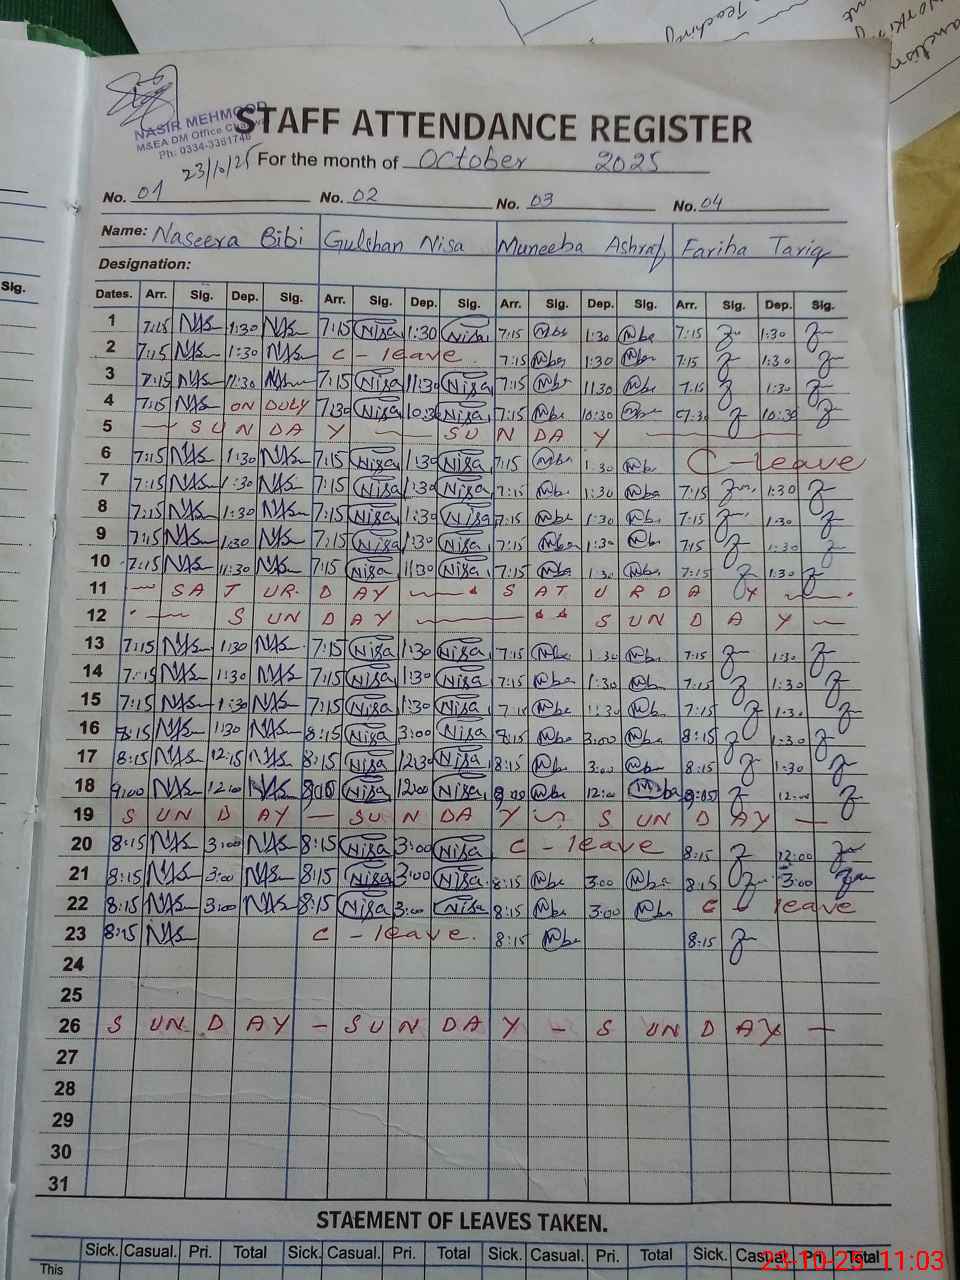 Teaching
NASIR MEHMOOD
M&EA DM Office
Ph: 0334-3381748
23/10/25
STAFF ATTENDANCE REGISTER
For the month of October 2025
No. 01 No. 02 No. 03 No. 04
Name: Naseera Bibi Gulshan Nisa Muneeba Ashraf Fariha Tariq
Designation:
Sig.
Dates. Arr. Sig. Dep. Sig. Arr. Sig. Dep. Sig. Arr. Sig. Dep. Sig. Arr. Sig. Dep. Sig.
1 7:15 NAS 1:30 NAS 7:15 Nisa 1:30 Nisa 7:15 1:30 7:15 1:30
2 7:15 NAS 1:30 NAS C - leave. 7:15 1:30 7:15 1:30
3 7:15 NAS 11:30 NAS 7:15 Nisa 11:30 Nisa 7:15 11:30 7:15 11:30
4 7:15 NAS ON DUTY 7:30 Nisa 10:30 Nisa 7:15 10:30 10:30
5 SUNDAY SUNDAY
6 7:15 NAS 1:30 NAS 7:15 Nisa 1:30 Nisa 7:15 1:30 C - leave
7 7:15 NAS 1:30 NAS 7:15 Nisa 1:30 Nisa 7:15 1:30 7:15 1:30
8 7:15 NAS 1:30 NAS 7:15 Nisa 1:30 Nisa 7:15 1:30 7:15 1:30
9 7:15 NAS 1:30 NAS 7:15 Nisa 1:30 Nisa 7:15 1:30 7:15 1:30
10 7:15 NAS 11:30 NAS 7:15 Nisa 11:30 Nisa 7:15 1:30 7:15 1:30
11 SATURDAY SATURDAY
12 SUNDAY SUNDAY
13 7:15 NAS 1:30 NAS 7:15 Nisa 1:30 Nisa 7:15 1:30 7:15 1:30
14 7:15 NAS 1:30 NAS 7:15 Nisa 1:30 Nisa 7:15 1:30 7:15 1:30
15 7:15 NAS 1:30 NAS 7:15 Nisa 1:30 Nisa 7:15 1:30 7:15 1:30
16 8:15 NAS 1:30 NAS 8:15 Nisa 3:00 Nisa 8:15 3:00 8:15 1:30
17 8:15 NAS 12:15 NAS 8:15 Nisa 12:30 Nisa 8:15 3:00 8:15 1:30
18 9:00 NAS 12:00 NAS Nisa 12:00 Nisa 12:00 12:00
19 SUNDAY - SUNDAY SUNDAY -
20 8:15 NAS 3:00 NAS 8:15 Nisa 3:00 Nisa C - leave 8:15 12:00
21 8:15 NAS 3:00 NAS 8:15 Nisa 3:00 Nisa 8:15 3:00 8:15 3:00
22 8:15 NAS 3:00 NAS 8:15 Nisa 3:00 Nisa 8:15 3:00 C - leave
23 8:15 NAS C - leave. 8:15 8:15
24
25
26 SUNDAY - SUNDAY - SUNDAY -
27
28
29
30
31
STAEMENT OF LEAVES TAKEN.
Sick. Casual. Pri. Total Sick. Casual. Pri. Total Sick. Casual. Pri. Total Sick. Casual Pri. Total
This
23-10-25 11:03